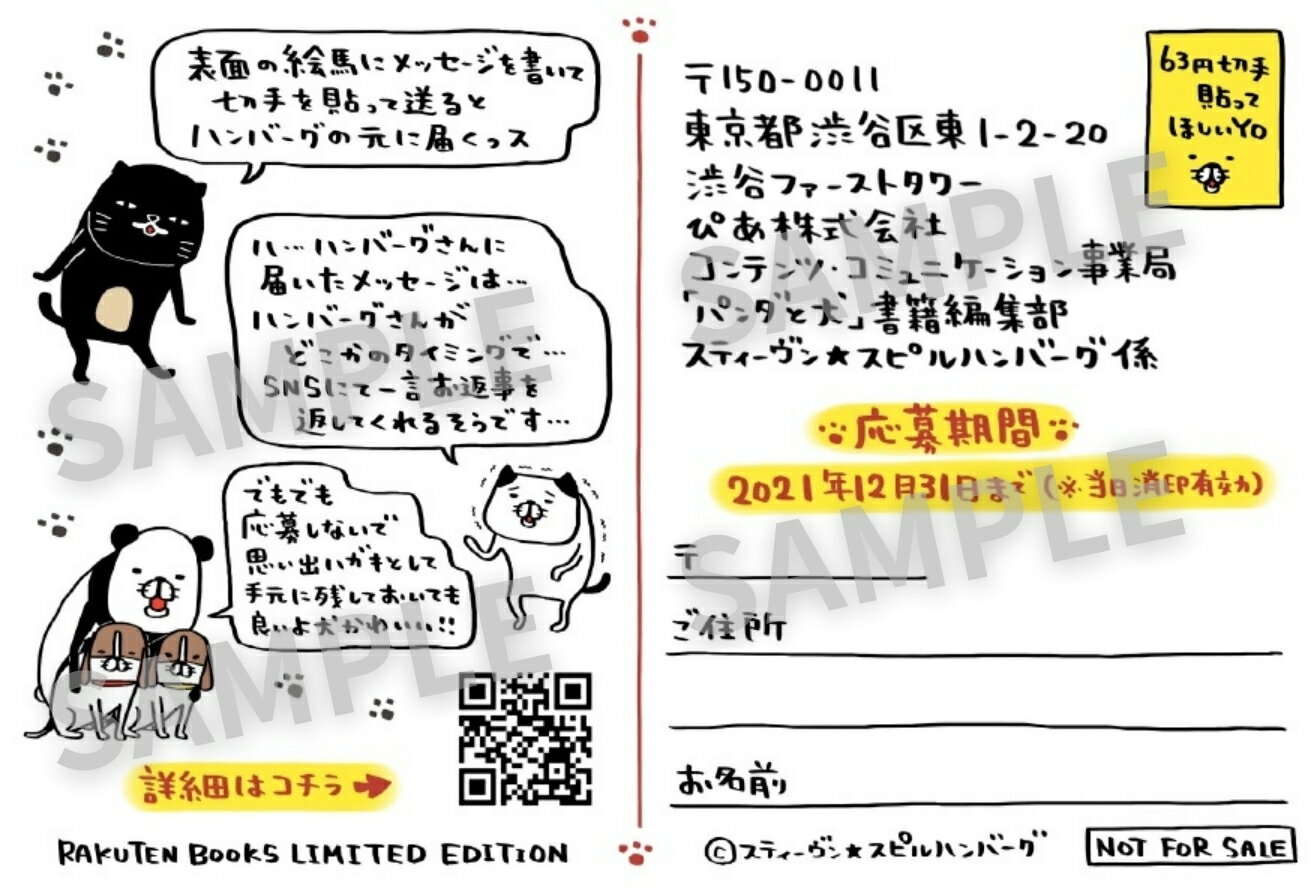 表面の絵馬にメッセージを書いて
切手を貼って送ると
ハンバーグの元に届くっス
ハ…ハンバーグさんに
届いたメッセージは…
ハンバーグさんが
どこかのタイミングで…
SNSにて一言お返事を
返してくれるそうです…
でもでも
応募しないで
思い出ハガキとして
手元に残しておいても
良いよ犬かわいい!!
詳細はコチラ➡
RAKUTEN BOOKS LIMITED EDITION
63円切手
貼って
ほしいYO
〒150-0011
東京都渋谷区東1-2-20
渋谷ファーストタワー
ぴあ株式会社
コンテンツ・コミュニケーション事業局
「パンダと犬」書籍編集部
スティーヴン★スピルハンバーグ係
応募期間
2021年12月31日まで(※当日消印有効)
〒
ご住所
お名前
©スティーヴン★スピルハンバーグ
NOT FOR SALE
SAMPLE
SAMPLE
SAMPLE
SAMPLE